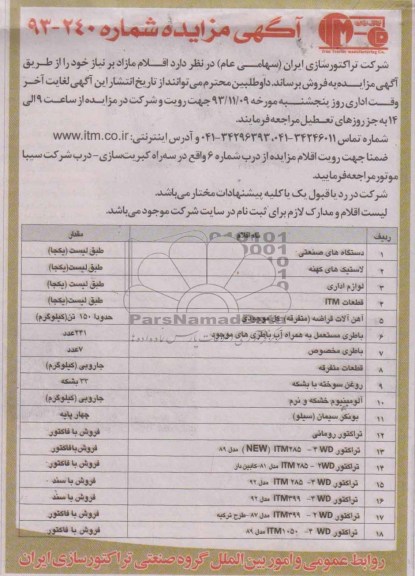 آگهی مزایده شماره ۲۴۰-۹۳
شرکت تراکتورسازی ایران (سهامی عام) در نظر دارد اقلام مازاد بر نیاز خود را از طریق
آگهی مزایده به فروش برساند. داوطلبین محترم می‌توانند از تاریخ انتشار این آگهی لغایت آخر
وقت اداری روز پنجشنبه مورخه ۹۳/۱۱/۰۹ جهت رویت و شرکت در مزایده از ساعت ۹ الی
۱۴ به جز روزهای تعطیل مراجعه فرمایند.
شماره تماس ۳۴۲۴۶۰۱۱-۰۴۱، ۳۴۲۹۶۳۹۳-۰۴۱ و آدرس اینترنتی: www.itm.co.ir
ضمنا جهت رویت اقلام مزایده از درب شماره ۶ واقع در سه‌راه کبریت‌سازی-درب شرکت سیبا
موتور مراجعه فرمایید.
شرکت در رد یا قبول یک یا کلیه پیشنهادات مختار می‌باشد.
لیست اقلام و مدارک لازم برای ثبت نام در سایت شرکت موجود می‌باشد.
ردیف مقدار
۱ دستگاه های صنعتی طبق لیست (یکجا)
۲ لاستیک های کهنه طبق لیست(یکجا)
۳ لوازم اداری طبق لیست(یکجا)
۴ قطعات ITM طبق لیست (یکجا)
۵ آهن آلات قراضه (متفرقه) حدودا ۱۵۰ تن(کیلوگرم)
۶ باطری مستعمل به همراه آب باطری های موجود ۲۳۱عدد
۷ باطری مخصوص ۷عدد
۸ قطعات متفرقه جاروبی (کیلوگرم)
۹ روغن سوخته با بشکه ۳۲ بشکه
۱۰ آلومینیوم خشکه و نرم جاروبی (کیلوگرم)
۱۱ بونکر سیمان (سیلو) چهار پایه
۱۲ تراکتور رومانی فروش با فاکتور
۱۳ تراکتور ITM۲۸۵ - ۲ WD (NEW) مدل ۸۹ فروش بافاکتور
۱۴ تراکتور ITM ۲۸۵ - ۲WD مدل ۸۱-کابین دار فروش با فاکتور
۱۵ تراکتور ITM ۲۸۵ -۲ WD مدل ۹۲ فروش با سند
۱۶ تراکتور ITM۳۹۹ -۲ WD مدل ۹۲ فروش با سند
۱۷ تراکتور ITM۳۹۹ - ۲ WD مدل ۸۷-طرح ترکیه فروش با فاکتور
۱۸ تراکتور ITM۱۰۵۰ -۴ WD مدل ۸۹ فروش با فاکتور
روابط عمومی و امور بین الملل گروه صنعتی تراکتورسازی ایران